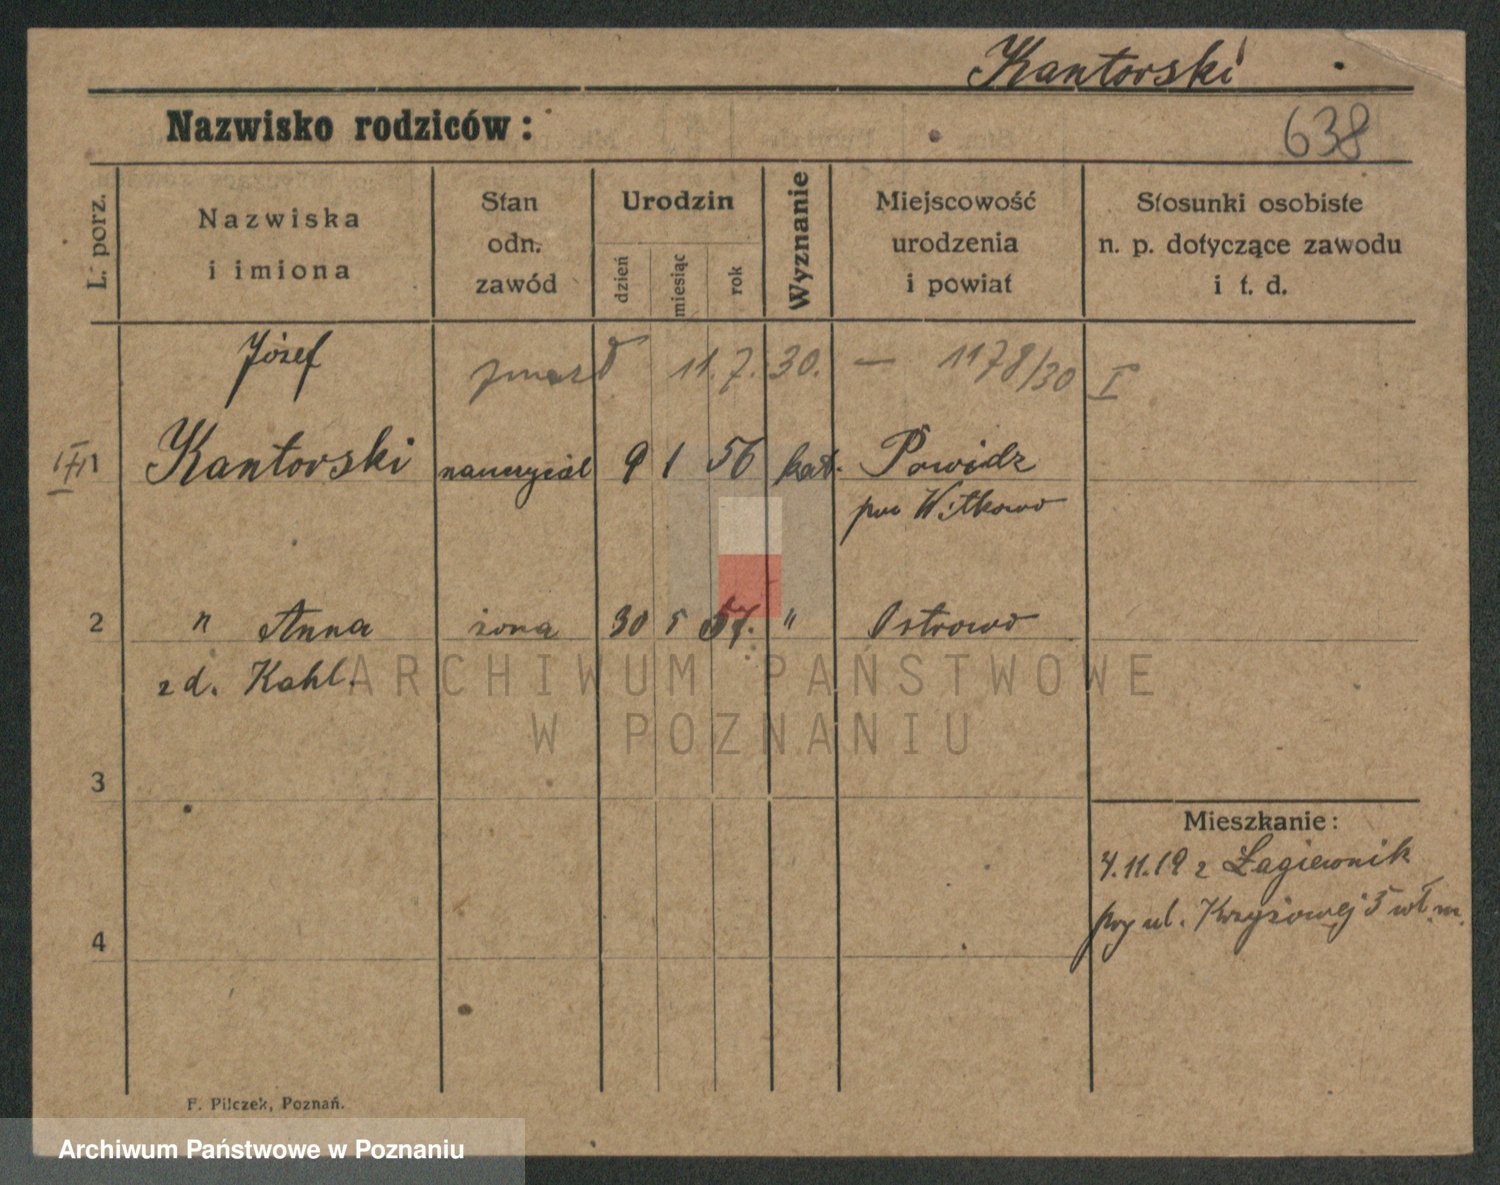 Kantorski
Nazwisko rodziców:
638
L. porz.
Nazwiska
i imiona
Stan
odn.
zawód
Urodzin
dzień
miesiąc
rok
Wyznanie
Miejscowość
urodzenia
i powiat
Stosunki osobiste
n. p. dotyczące zawodu
i t. d.
Józef
zmarł 11.7.30. — 1178/30 I
1 Kantorski nauczyciel 9 1 56 kat. Powidz
pow Witkowo
2 " Anna żona 30 5 57. " Ostrowo
z d. Kahl.
ARCHIWUM PAŃSTWOWE
W POZNANIU
3
Mieszkanie:
4.11.19 z Łagiewnik
przy ul. Krzyżowej 5 wł. m.
4
F. Pilczek, Poznań.
Archiwum Państwowe w Poznaniu